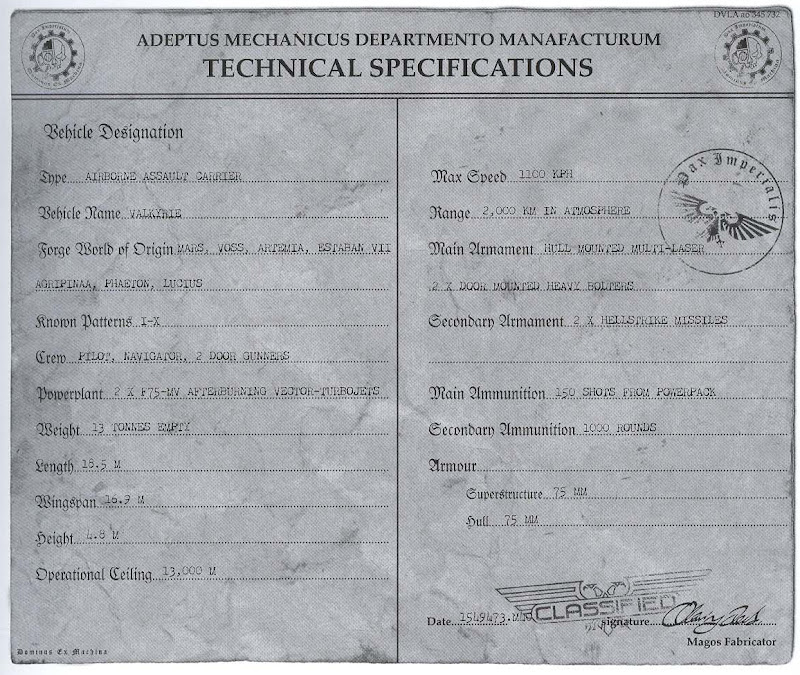 DVLA ao 345 732
ADEPTUS MECHANICUS DEPARTMENTO MANAFACTURUM
TECHNICAL SPECIFICATIONS
Vehicle Designation
Type AIRBORNE ASSAULT CARRIER
Vehicle Name VALKYRIE
Forge World of Origin MARS, VOSS, ARTEMIA, ESTABAN VII
AGRIPINAA, PHAETON, LUCIUS
Known Patterns I-X
Crew PILOT, NAVIGATOR, 2 DOOR GUNNERS
Powerplant 2 X F75-MV AFTERBURNING VECTOR-TURBOJETS
Weight 13 TONNES EMPTY
Length 18.5 M
Wingspan 16.9 M
Height 4.8 M
Operational Ceiling 13,000 M
Dominus Ex Machina
Max Speed 1100 KPH
Pax Imperialis
Range 2,000 KM IN ATMOSPHERE
Main Armament HULL MOUNTED MULTI-LASER
2 X DOOR MOUNTED HEAVY BOLTERS
Secondary Armament 2 X HELLSTRIKE MISSILES
Main Ammunition 150 SHOTS FROM POWERPACK
Secondary Ammunition 1000 ROUNDS
Armour
Superstructure 75 MM
Hull 75 MM
CLASSIFIED
Date 1549473. signature
Magos Fabricator